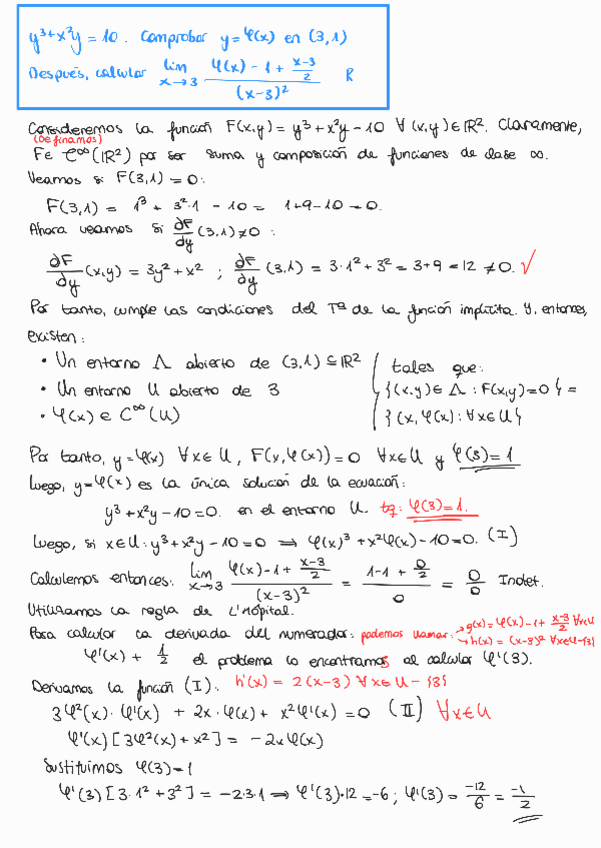 y³+x²y = 10. Comprobar y = φ(x) en (3,1)
Después, calcular lim x→3 (φ(x) - 1 + (x-3)/2) / (x-3)² R
Consideremos la función F(x,y) = y³+x²y - 10 ∀(x,y)∈ℝ². Claramente,
(Definamos)
F∈ C^∞(ℝ²) por ser suma y composición de funciones de clase ∞.
Veamos si F(3,1) = 0:
F(3,1) = 1³ + 3²·1 - 10 = 1+9-10 = 0.
Ahora veamos si ∂F/∂y (3,1) ≠ 0:
∂F/∂y (x,y) = 3y²+x² ; ∂F/∂y (3,1) = 3·1²+3² = 3+9 = 12 ≠ 0. ✓
Por tanto, cumple las condiciones del Tª de la función implícita. Y, entonces,
existen:
• Un entorno Λ abierto de (3,1) ⊆ ℝ²
• Un entorno U abierto de 3
• φ(x) ∈ C^∞(U)
tales que:
{(x,y) ∈ Λ : F(x,y) = 0} =
{(x, φ(x) : ∀x∈U}
Por tanto, y = φ(x) ∀x∈U, F(x,φ(x)) = 0 ∀x∈U y φ(3) = 1
Luego, y = φ(x) es la única solución de la ecuación:
y³ + x²y - 10 = 0. en el entorno U. tq: φ(3) = 1.
Luego, si x∈U: y³+x²y - 10 = 0 ⟹ φ(x)³ + x²φ(x) - 10 = 0. (I)
Calculemos entonces: lim x→3 (φ(x) - 1 + (x-3)/2) / (x-3)² = (1-1+0/2) / 0 = 0/0 Indet.
Utilizamos la regla de L'Hôpital.
Para calcular la derivada del numerador: podemos llamar: → g(x) = φ(x) - 1 + (x-3)/2 ∀x∈U
→ h(x) = (x-3)² ∀x∈U-{3}
φ'(x) + 1/2 el problema lo encontramos al calcular φ'(3).
Derivamos la función (I): h'(x) = 2(x-3) ∀x∈U-{3}
3φ²(x)·φ'(x) + 2x·φ(x) + x²φ'(x) = 0 (II) ∀x∈U
φ'(x) [3φ²(x) + x²] = -2xφ(x)
Sustituimos φ(3) = 1
φ'(3) [3·1² + 3²] = -2·3·1 ⟹ φ'(3)·12 = -6 ; φ'(3) = -12/6 = -1/2